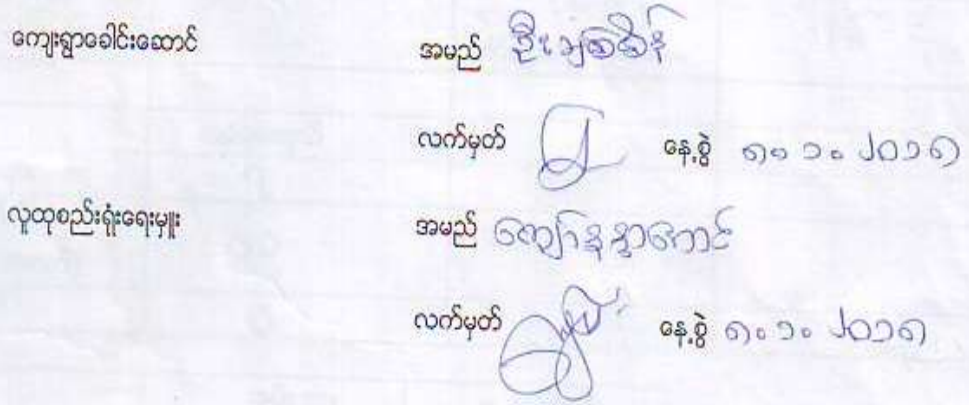 ကျေးရွာခေါင်းဆောင် အမည် ဦး
လက်မှတ် နေ့စွဲ ၈.၁.၂၀၁၈
လူထုစည်းရုံးရေးမှူး အမည် ကျော်နန္ဒာကောင်း
လက်မှတ် နေ့စွဲ ၈.၁.၂၀၁၈